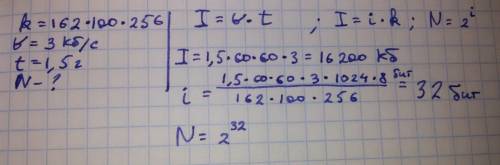 k = 162 · 100 · 256
v = 3 кб/с
t = 1,5 г
N - ?
I = v · t ; I = i · k ; N = 2^i
I = 1,5 · 60 · 60 · 3 = 16200 кб
i = 1,5 · 60 · 60 · 3 · 1024 · 8 бит / 162 · 100 · 256 = 32 бит
N = 2^32